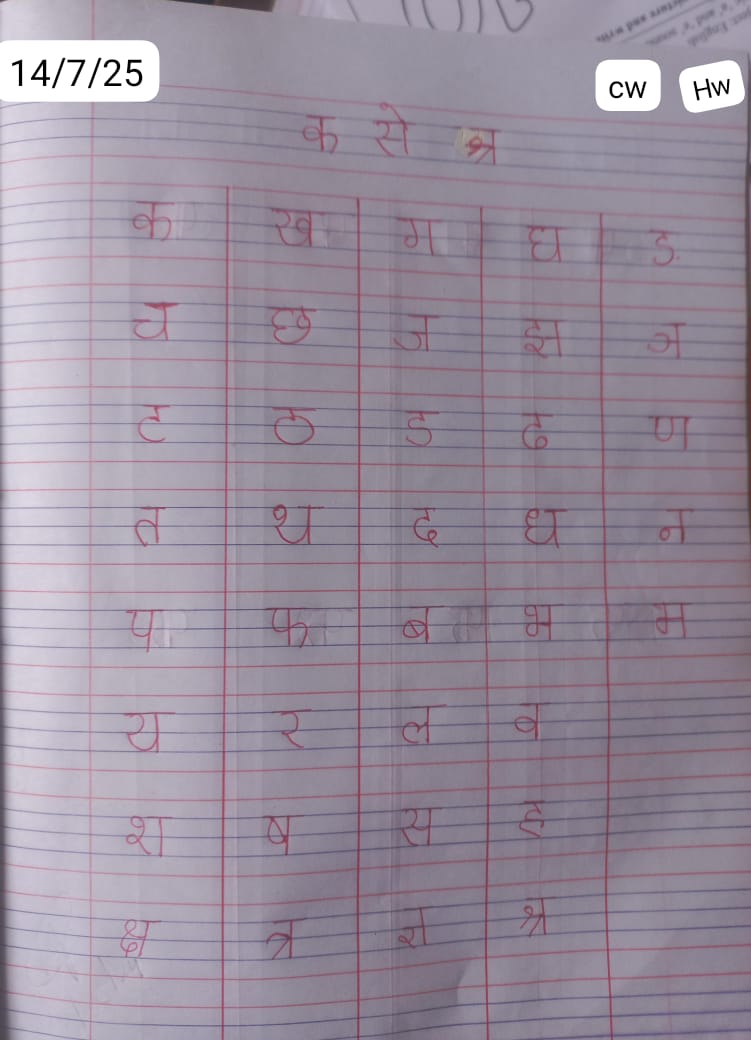 14/7/25 CW HW
क से श्र
क ख ग घ ङ
च छ ज झ ञ
ट ठ ड ढ ण
त थ द ध न
प फ ब भ म
य र ल व
श ष स ह
क्ष त्र ज्ञ श्र